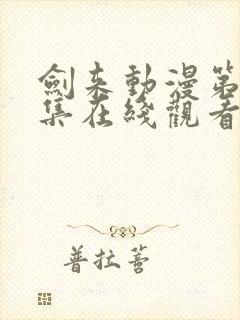 劍來動漫第
集在綫觀看
普拉薈